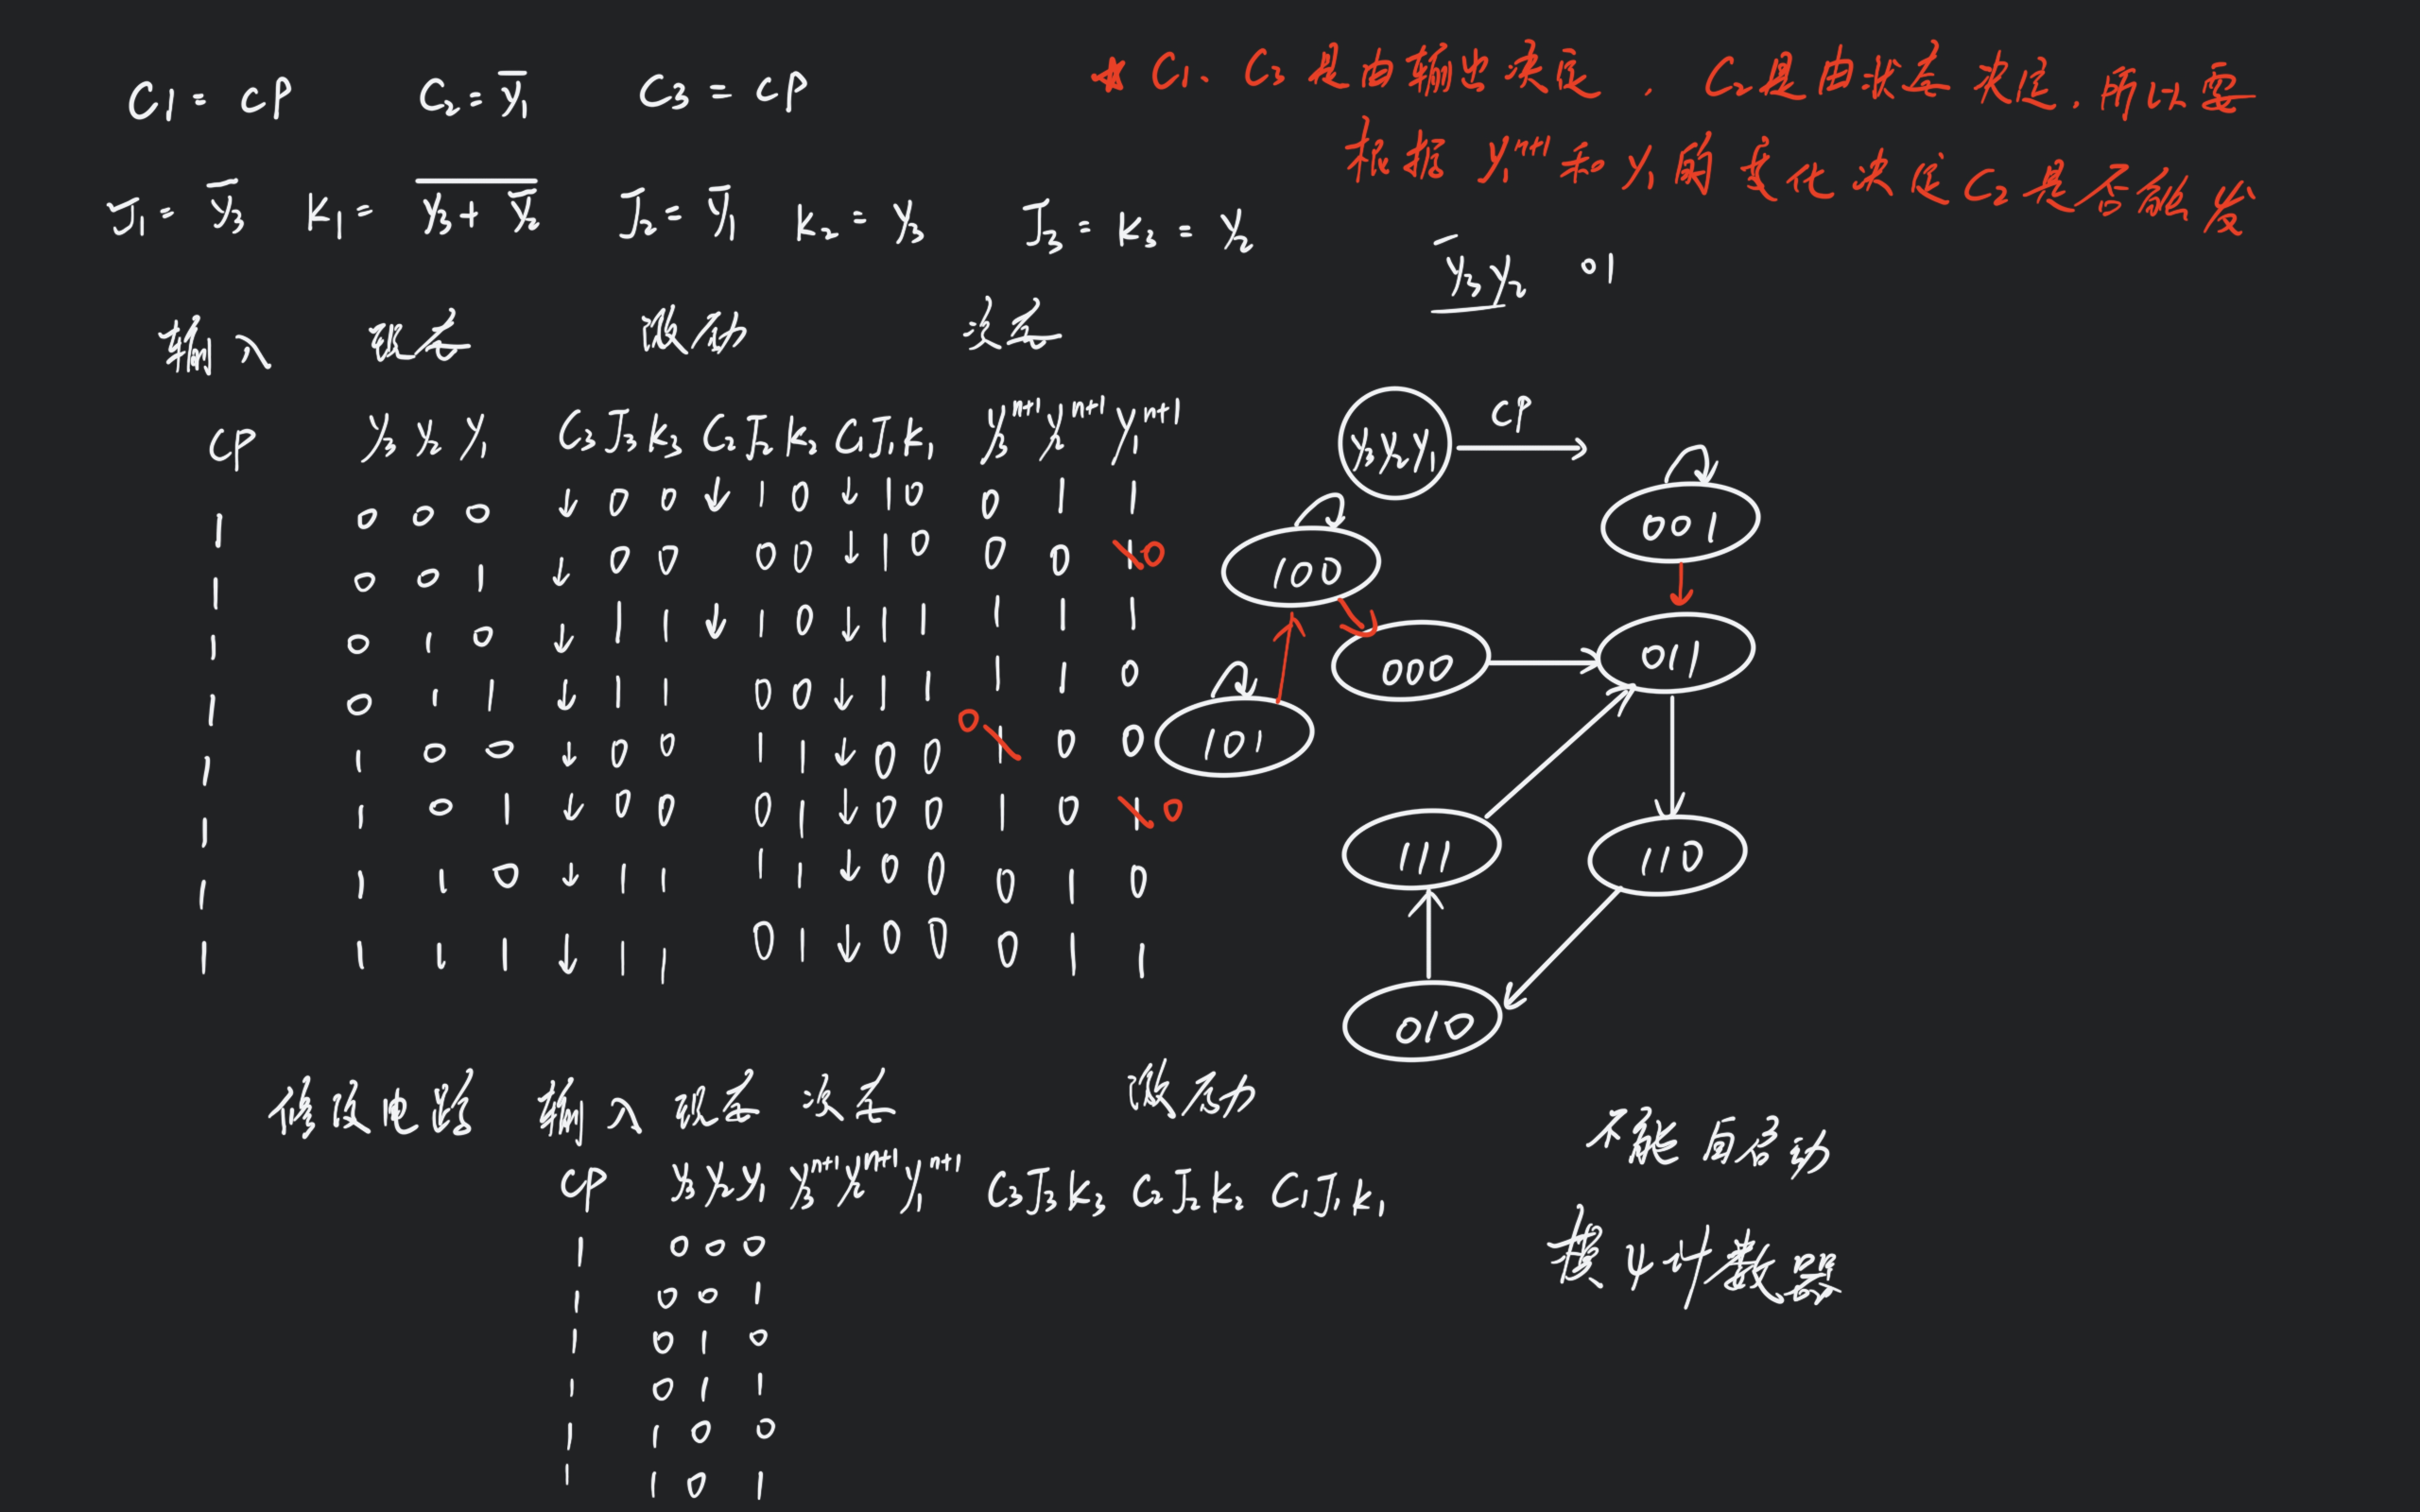 C₁ = CP C₂ = y̅₁ C₃ = CP
★ C₁、C₃是由输出决定，C₂是由状态决定，所以要
根据 y₁ⁿ⁺¹ 和 y₁ 的变化决定C₂是否触发
J₁ = y̅₃ K₁ = \overline{y₃ + y̅₂} J₂ = y̅₁ K₂ = y₃ J₃ = K₃ = y₂
y̅₃y₂ 01
输入 现态 激励 次态
CP y₃ y₂ y₁ C₃ J₃ K₃ C₂ J₂ K₂ C₁ J₁ K₁ y₃ⁿ⁺¹ y₂ⁿ⁺¹ y₁ⁿ⁺¹
1 0 0 0 ↓ 0 0 ↓ 1 0 ↓ 1 0 0 1 1
1 0 0 1 ↓ 0 0 0 0 ↓ 1 0 0 0 1 0
1 0 1 0 ↓ 1 1 ↓ 1 0 ↓ 1 1 1 1 1
1 0 1 1 ↓ 1 1 0 0 ↓ 1 1 1 1 0
1 1 0 0 ↓ 0 0 1 1 ↓ 0 0 0 1 0 0
1 1 0 1 ↓ 0 0 0 1 ↓ 0 0 1 0 1 0
1 1 1 0 ↓ 1 1 1 1 ↓ 0 0 0 1 0
1 1 1 1 ↓ 1 1 0 1 ↓ 0 0 0 1 1
y₃y₂y₁ CP
001
100
000 011
101
111 110
010
不能自启动
模4计数器
修改电路 输入 现态 次态 激励
CP y₃y₂y₁ y₃ⁿ⁺¹y₂ⁿ⁺¹y₁ⁿ⁺¹ C₃J₃K₃ C₂J₂K₂ C₁J₁K₁
1 0 0 0
1 0 0 1
1 0 1 0
1 0 1 1
1 1 0 0
1 1 0 1